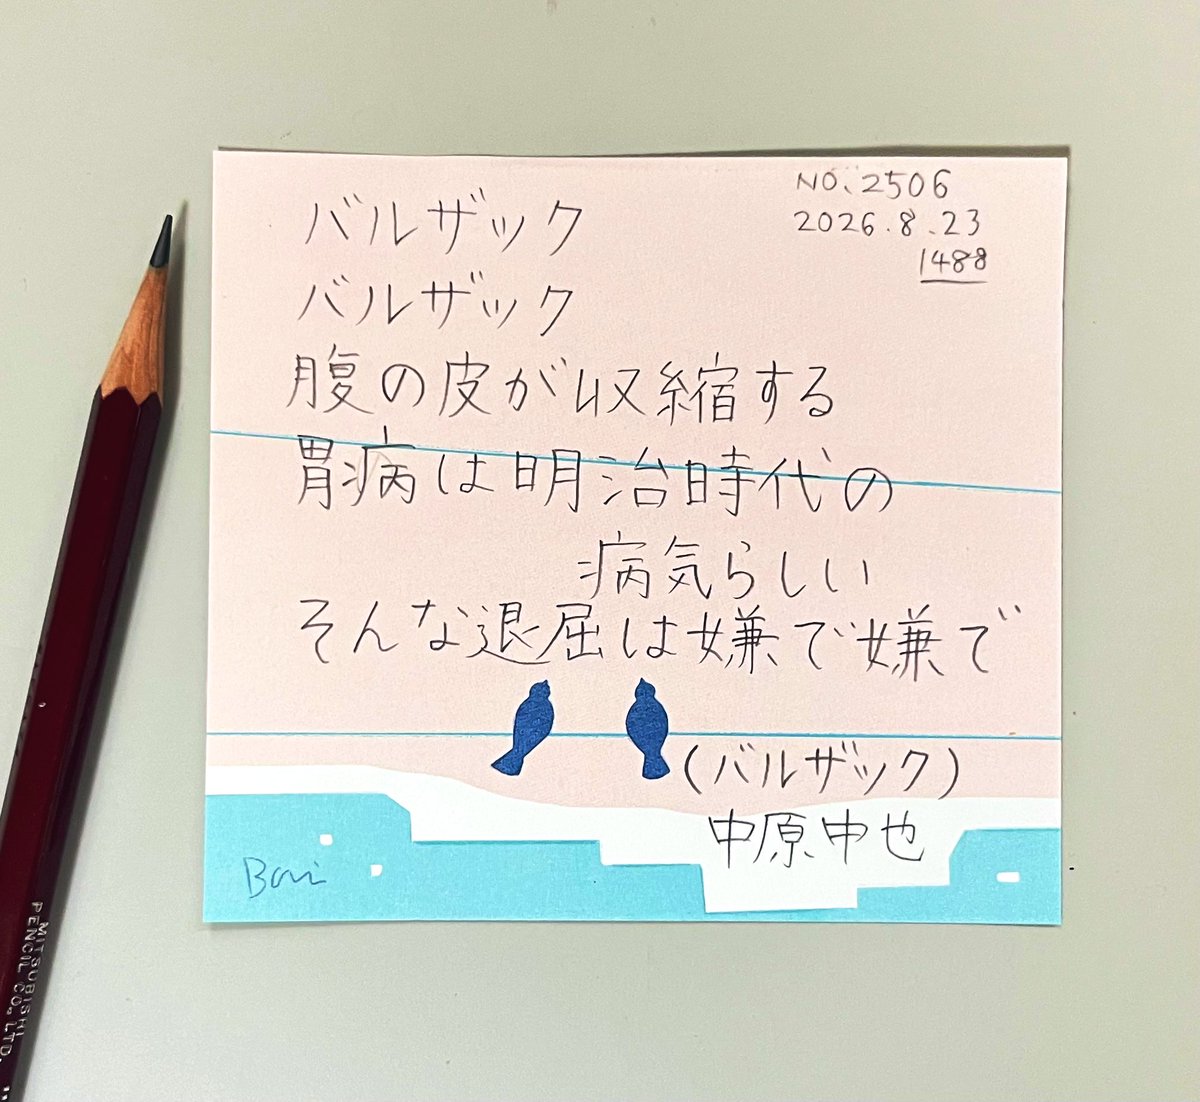 NO.2506
2026.8.23
1488
バルザック
バルザック
腹の皮が収縮する
胃病は明治時代の
病気らしい
そんな退屈は嫌で嫌で
(バルザック)
中原中也
MITSUBISHI
PENCIL CO.,LTD.